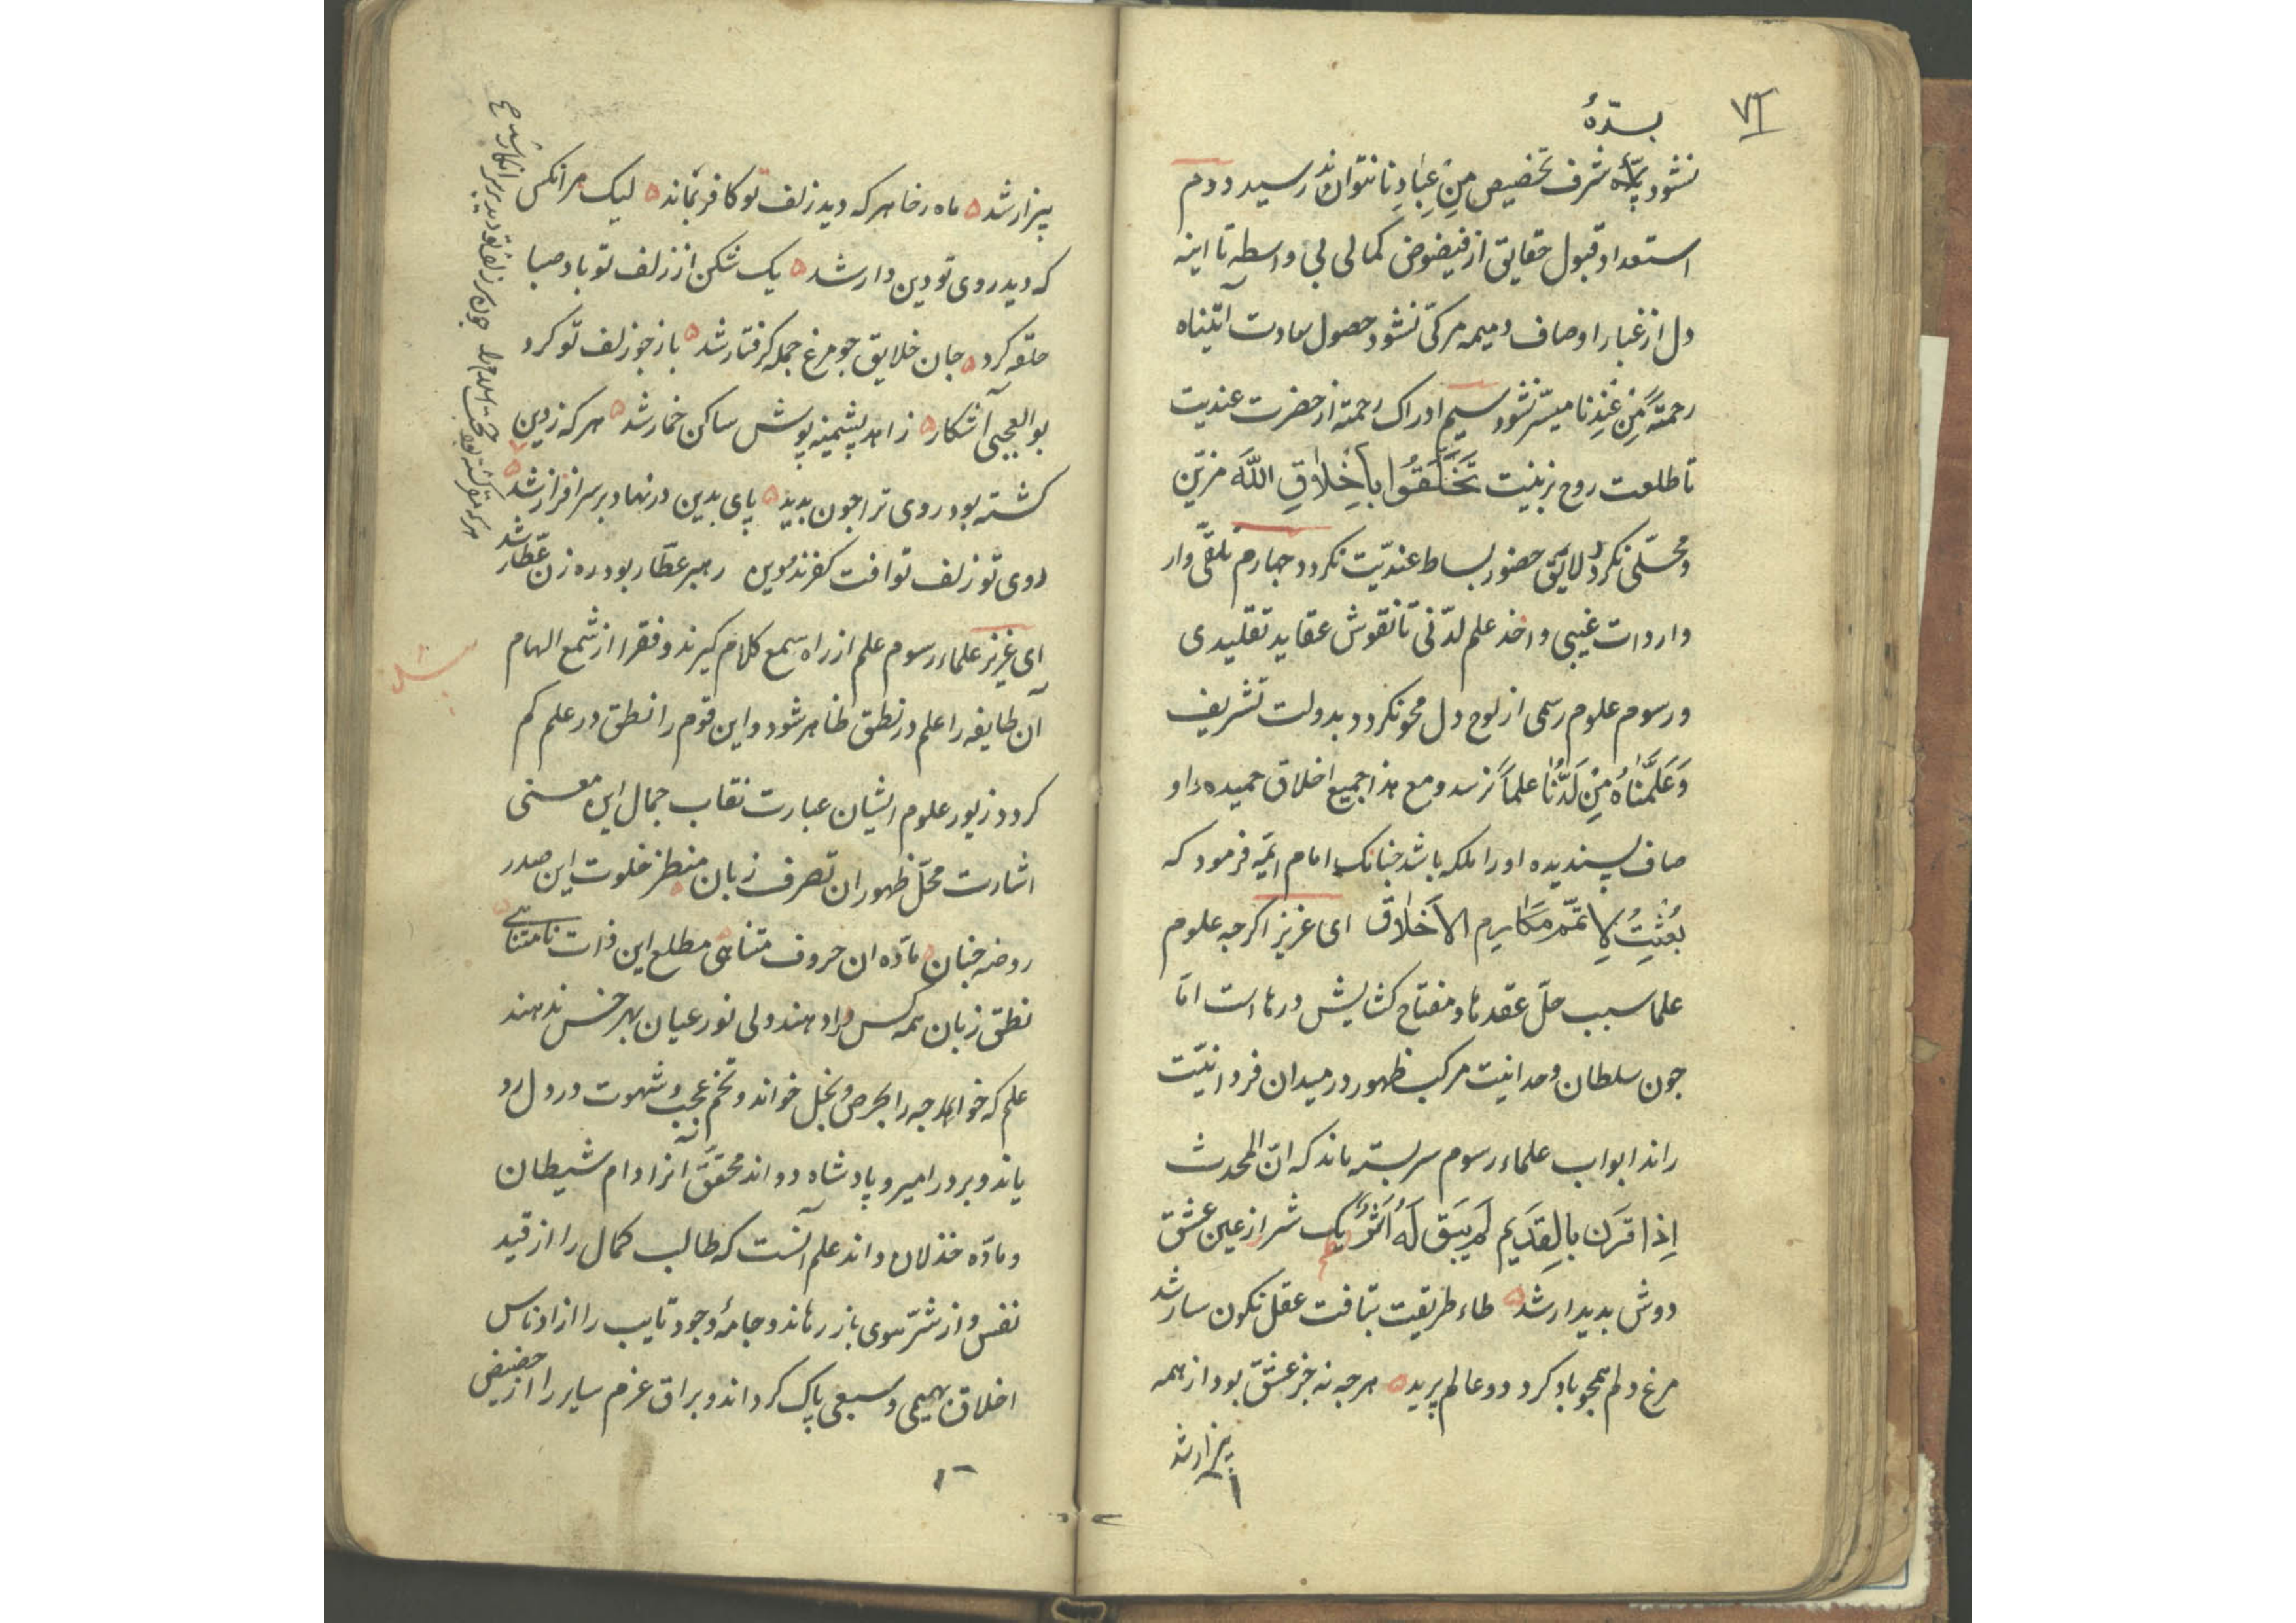 ۷۱
بسدّهٔ
نشود پایه شرف تخصیص مِن عِبادِنا نتواند رسید دوم
استعداد قبول حقایق از فیضوض کمالی بی واسطه تا اینه
دل از غبار اوصاف ذمیمه مزکّی نشود حصول سعادت آتیناه
رحمتًه مِن عِندِنا میسّر نشود سیم ادراک رحمة از حضرت عندیت
تا طلعت روح بزینت تَخَلَّقُوا بأَخِلاٰقِ اللَّه مزیّن
و محلّی نکردد لایق حضور بساط عندیّت نکردد جهارم تلقّی وار
واردات غیبی و اخذ علم لدّنی تا نقوش عقاید تقلیدی
و رسوم علوم رسمی از لوح دل محو نکردد بدولت تشریف
وَعَلَّمْنٰاهُ مِنْ لَدُنّٰا علماً نرسد و مع هذا جمیع اخلاق حمیده و او
صاف پسندیده او را ملکه باشد جنانک امام ائمّه فرمود که
بُعِثِتُ لِاتَمّم مَکٰارِم الاَخلٰاق ای عزیز اکرجه علوم
علما سبب حلّ عقدها و مفتاح کشایش درهاست امّا
جون سلطان وحدانیت مرکب ظهور در میدان فردانیّت
راند ابواب علماء رسوم سربسته ماند که انّ المحدث
اِذا قَرَن بالِقدَیم لم یَبَق لَهُ اَثَرٌ یک شرر از عین عشق
دوش بدیدار شد ه طاء طریقت بتافت عقل نکون سار شد
مرغ دلم همجو باد کرد دو عالم پرید ه هرجه نه جز عشق بود از همه
بیزار شد
بیزار شد ه ماه رخا هر که دید زلف تو کافر بماند ه لیک هر انکس
که دید روی تو دین دار شد ه یک شکن از زلف تو باد صبا
حلقه کرد ه جان خلایق جو مرغ جمله کرفتار شد ه باز جو زلف تو کرد
بو العجبی آشکار ه زاهد پشمینه پوش ساکن خمار شد ه هر که ز دین
کشته بود روی ترا جون بدید ه پای بدین در نهاد بر سر افزار شد ه
روی تو و زلف تو افت کفرند و دین رهبر عطّار بود ره زن عطّار شد
ای عزیز علماء رسوم علم از راه سمع کلام کیرند و فقرا از شمع الهام
آن طایفه را علم در نطق ظاهر شود و این قوم را نطق در علم کم
کردد زیور علوم ایشان عبارت نقاب جمال این معنی
اشارت محلّ ظهور ان تصرف زبان منظر خلوت این صدر
روضه جنان مادّه ان حروف متناهی مطلع این ذات نامتناهی
نطق زبان همه کس را دهند ولی نور عیان بهر خس ندهند
علم که خواجه را بحرص و بخل خواند و تخم عجب و شهوت در دل رو
یاند و بر در امیر و پادشاه دواند محقّق آنرا دام شیطان
و مادّه خذلان داند علم آنست که طالب کمال را از قید
نفس و از شرّ هوی باز رهاند و جامهٔ وجود تایب را از ادناس
اخلاق بهیمی و سبعی پاک کرداند و براق عزم سایر را از حضیض